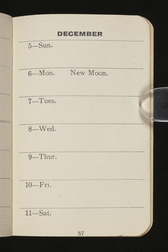 DECEMBER
5—Sun.
6—Mon. New Moon.
7—Tues.
8—Wed.
9—Thur.
10—Fri.
11—Sat.
57